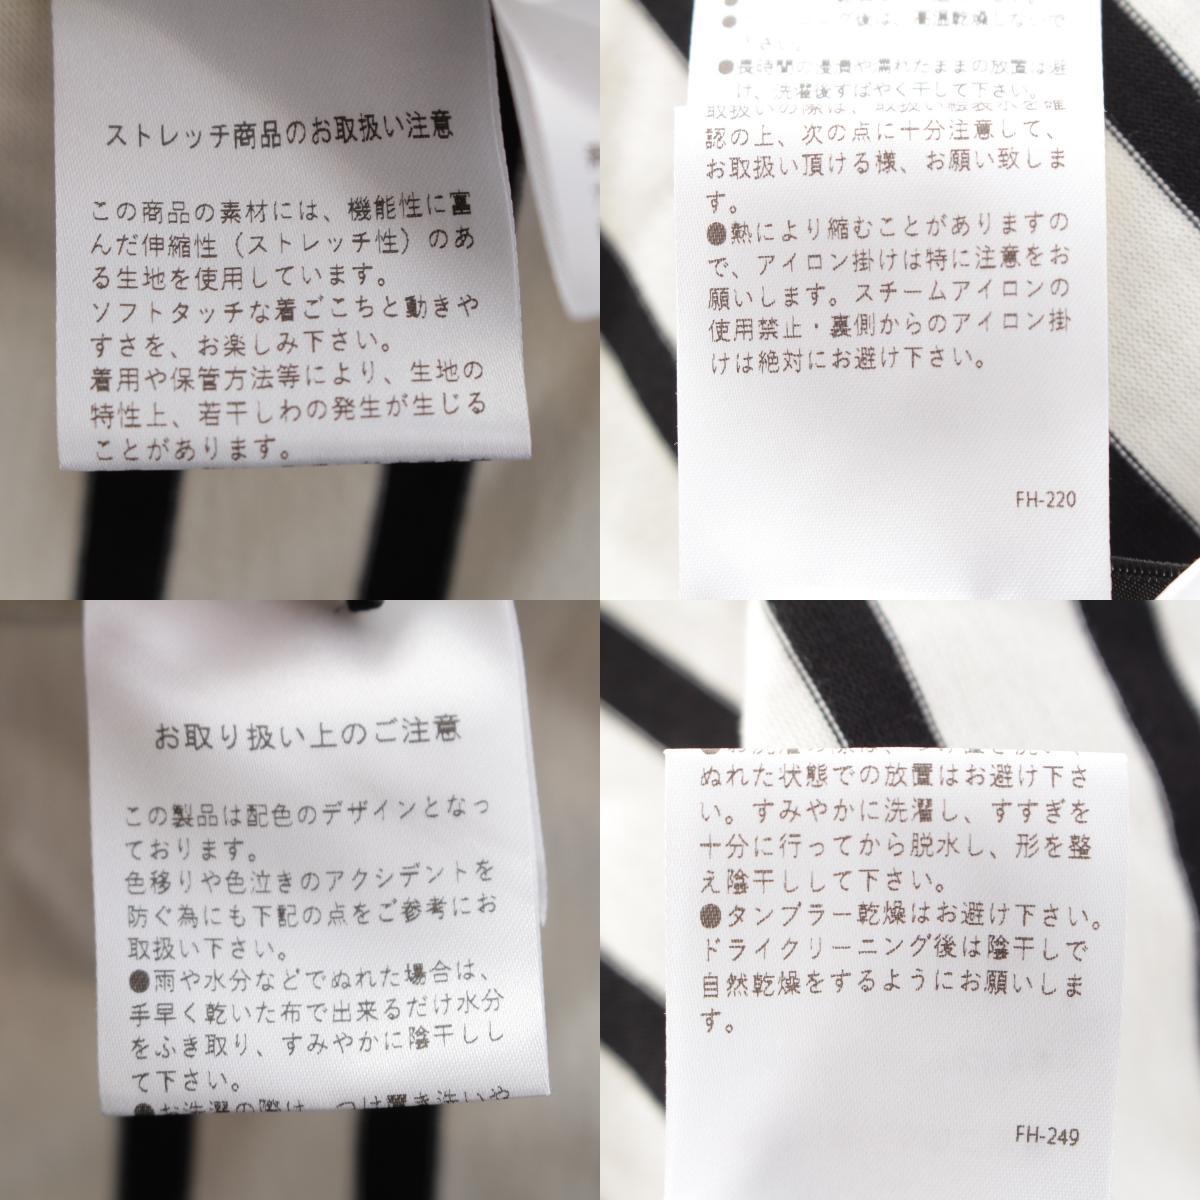 ストレッチ商品のお取扱い注意
この商品の素材には、機能性に富
んだ伸縮性（ストレッチ性）のあ
る生地を使用しています。
ソフトタッチな着ごこちと動きや
すさを、お楽しみ下さい。
着用や保管方法等により、生地の
特性上、若干しわの発生が生じる
ことがあります。
ニング後は、高温乾燥しないで
下さい。
●長時間の浸漬や濡れたままの放置は避
け、洗濯後すばやく干して下さい。
取扱いの際は、取扱い絵表示を確
認の上、次の点に十分注意して、
お取扱い頂ける様、お願い致しま
す。
●熱により縮むことがありますの
で、アイロン掛けは特に注意をお
願いします。スチームアイロンの
使用禁止・裏側からのアイロン掛
けは絶対にお避け下さい。
FH-220
お取り扱い上のご注意
この製品は配色のデザインとなっ
ております。
色移りや色泣きのアクシデントを
防ぐ為にも下記の点をご参考にお
取扱い下さい。
●雨や水分などでぬれた場合は、
手早く乾いた布で出来るだけ水分
をふき取り、すみやかに陰干しし
て下さい。
●お洗濯の際は、つけ置き洗いや
●お洗濯の際は、つけ置き洗い、
ぬれた状態での放置はお避け下さ
い。すみやかに洗濯し、すすぎを
十分に行ってから脱水し、形を整
え陰干しして下さい。
●タンブラー乾燥はお避け下さい。
ドライクリーニング後は陰干しで
自然乾燥をするようにお願いしま
す。
FH-249